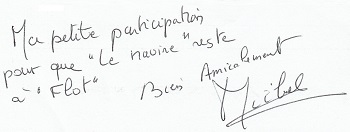 Ma petite participation
pour que "Le navire" reste
à "Flot"
Bien Amicalement
Michel